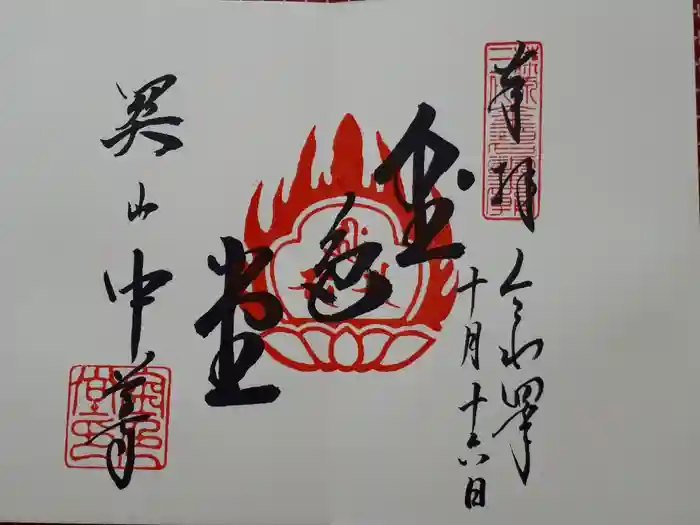 奉拝
令和四年
十月十六日
金色堂
関山
中尊寺
金色堂印